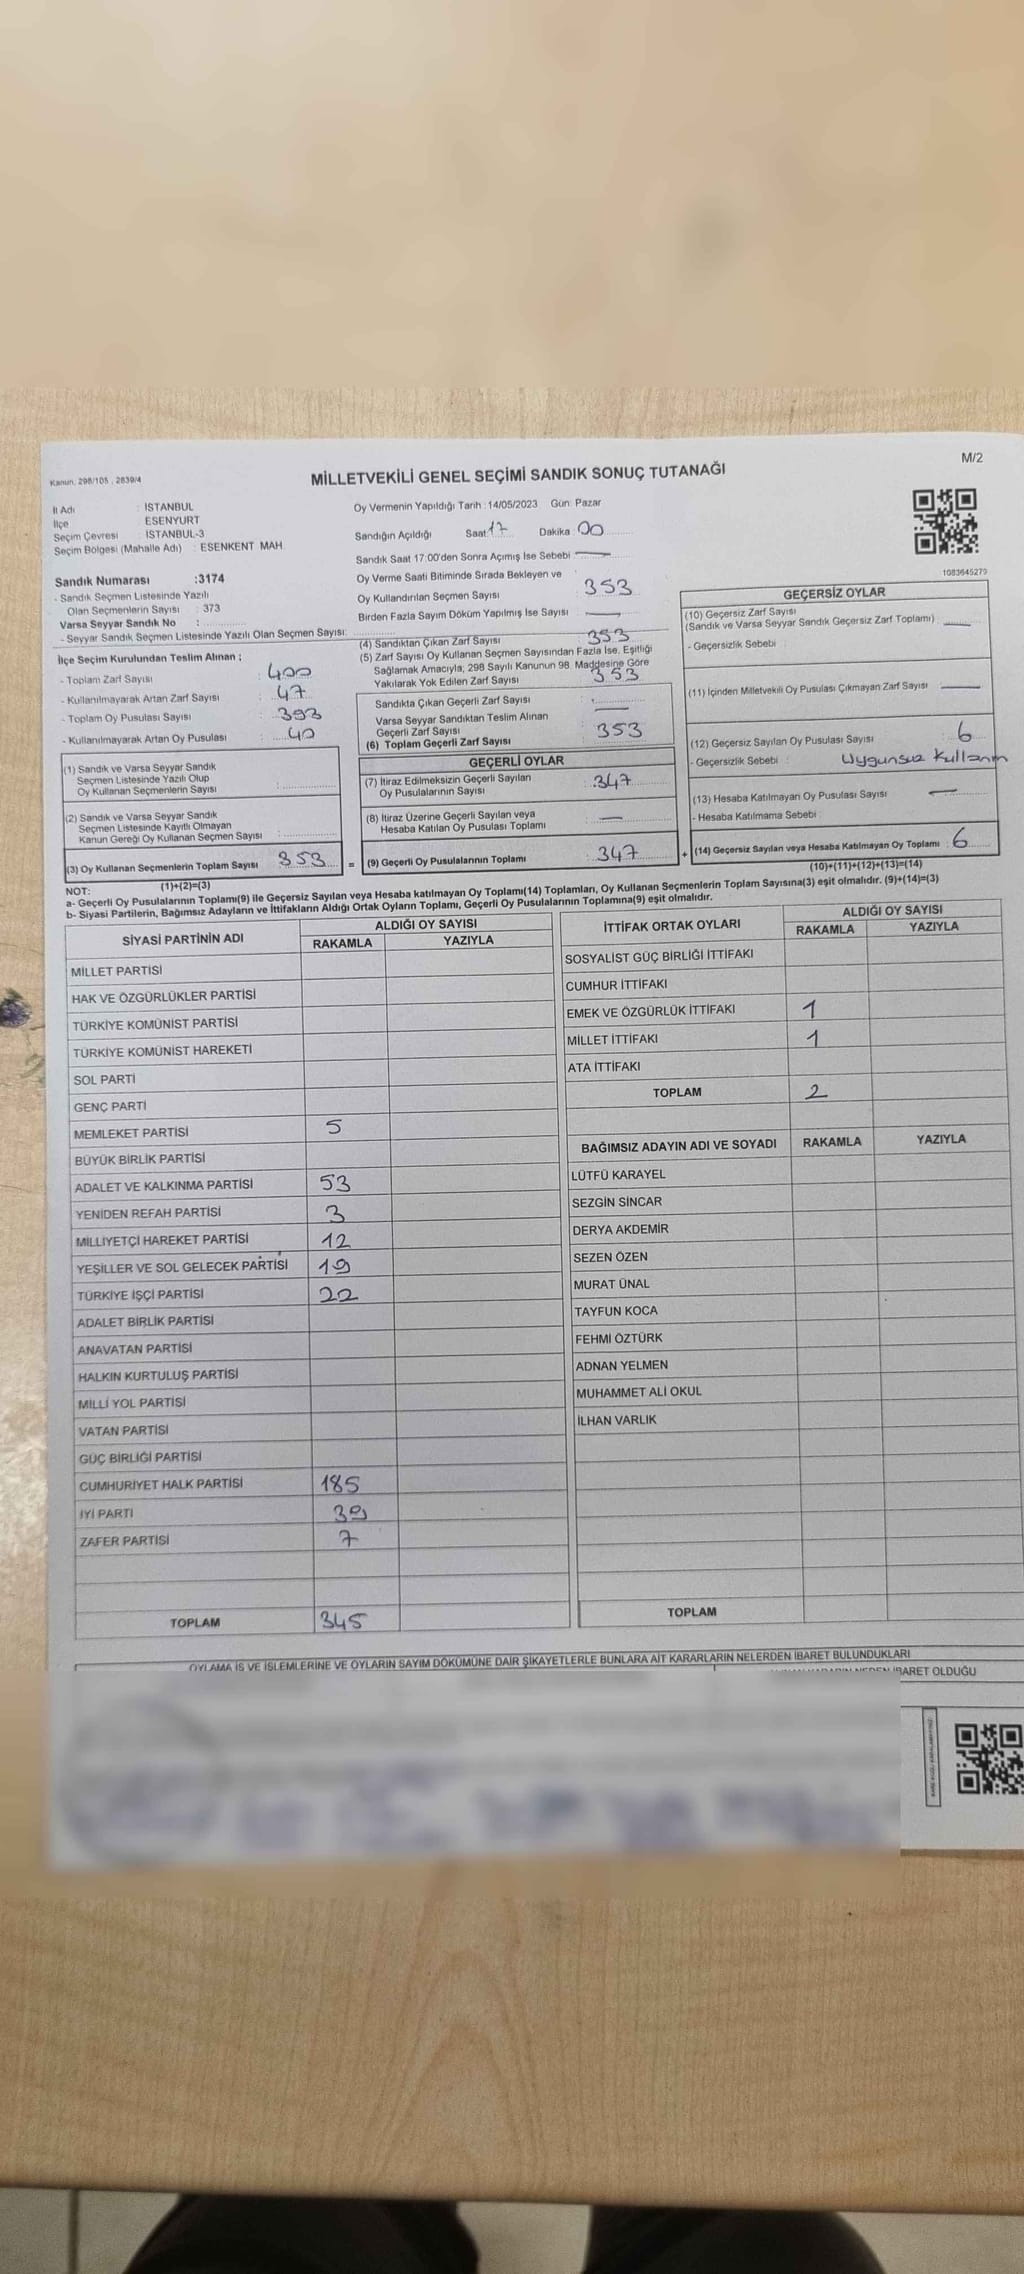 Kanun, 298/105 , 2839/4
MİLLETVEKİLİ GENEL SEÇİMİ SANDIK SONUÇ TUTANAĞI
M/2
İl Adı : İSTANBUL
İlçe : ESENYURT
Seçim Çevresi : İSTANBUL-3
Seçim Bölgesi (Mahalle Adı) : ESENKENT MAH.
Oy Vermenin Yapıldığı Tarih : 14/05/2023 Gün: Pazar
Sandığın Açıldığı Saat 17 Dakika 00
Sandık Saat 17:00'den Sonra Açımış İse Sebebi
Oy Verme Saati Bitiminde Sırada Bekleyen ve
Oy Kullandırılan Seçmen Sayısı : 353
Birden Fazla Sayım Döküm Yapılmış İse Sayısı :
1083645279
Sandık Numarası :3174
- Sandık Seçmen Listesinde Yazılı
Olan Seçmenlerin Sayısı : 373
Varsa Seyyar Sandık No :
- Seyyar Sandık Seçmen Listesinde Yazılı Olan Seçmen Sayısı:
İlçe Seçim Kurulundan Teslim Alınan ;
- Toplam Zarf Sayısı : 400
- Kullanılmayarak Artan Zarf Sayısı : 47
- Toplam Oy Pusulası Sayısı : 393
- Kullanılmayarak Artan Oy Pusulası : 40
(1) Sandık ve Varsa Seyyar Sandık
Seçmen Listesinde Yazılı Olup
Oy Kullanan Seçmenlerin Sayısı :
(2) Sandık ve Varsa Seyyar Sandık
Seçmen Listesinde Kayıtlı Olmayan
Kanun Gereği Oy Kullanan Seçmen Sayısı :
(3) Oy Kullanan Seçmenlerin Toplam Sayısı : 353 =
(1)+(2)=(3)
(4) Sandıktan Çıkan Zarf Sayısı : 353
(5) Zarf Sayısı Oy Kullanan Seçmen Sayısından Fazla İse, Eşitliği
Sağlamak Amacıyla, 298 Sayılı Kanunun 98. Maddesine Göre
Yakılarak Yok Edilen Zarf Sayısı : 353
Sandıkta Çıkan Geçerli Zarf Sayısı :
Varsa Seyyar Sandıktan Teslim Alınan
Geçerli Zarf Sayısı :
(6) Toplam Geçerli Zarf Sayısı : 353
GEÇERLİ OYLAR
(7) İtiraz Edilmeksizin Geçerli Sayılan
Oy Pusulalarının Sayısı : 347
(8) İtiraz Üzerine Geçerli Sayılan veya
Hesaba Katılan Oy Pusulası Toplamı :
(9) Geçerli Oy Pusulalarının Toplamı : 347 +
GEÇERSİZ OYLAR
(10) Geçersiz Zarf Sayısı
(Sandık ve Varsa Seyyar Sandık Geçersiz Zarf Toplamı) :
- Geçersizlik Sebebi :
(11) İçinden Milletvekili Oy Pusulası Çıkmayan Zarf Sayısı :
(12) Geçersiz Sayılan Oy Pusulası Sayısı : 6
- Geçersizlik Sebebi : Uygunsuz Kullanım
(13) Hesaba Katılmayan Oy Pusulası Sayısı :
- Hesaba Katılmama Sebebi :
(14) Geçersiz Sayılan veya Hesaba Katılmayan Oy Toplamı : 6
(10)+(11)+(12)+(13)=(14)
NOT:
a- Geçerli Oy Pusulalarının Toplamı(9) ile Geçersiz Sayılan veya Hesaba katılmayan Oy Toplamı(14) Toplamları, Oy Kullanan Seçmenlerin Toplam Sayısına(3) eşit olmalıdır. (9)+(14)=(3)
b- Siyasi Partilerin, Bağımsız Adayların ve İttifakların Aldığı Ortak Oyların Toplamı, Geçerli Oy Pusulalarının Toplamına(9) eşit olmalıdır.
SİYASİ PARTİNİN ADI
ALDIĞI OY SAYISI
RAKAMLA YAZIYLA
MİLLET PARTİSİ
HAK VE ÖZGÜRLÜKLER PARTİSİ
TÜRKİYE KOMÜNİST PARTİSİ
TÜRKİYE KOMÜNİST HAREKETİ
SOL PARTİ
GENÇ PARTİ
MEMLEKET PARTİSİ 5
BÜYÜK BİRLİK PARTİSİ
ADALET VE KALKINMA PARTİSİ 53
YENİDEN REFAH PARTİSİ 3
MİLLİYETÇİ HAREKET PARTİSİ 12
YEŞİLLER VE SOL GELECEK PARTİSİ 19
TÜRKİYE İŞÇİ PARTİSİ 22
ADALET BİRLİK PARTİSİ
ANAVATAN PARTİSİ
HALKIN KURTULUŞ PARTİSİ
MİLLİ YOL PARTİSİ
VATAN PARTİSİ
GÜÇ BİRLİĞİ PARTİSİ
CUMHURİYET HALK PARTİSİ 185
İYİ PARTİ 39
ZAFER PARTİSİ 7
TOPLAM 345
İTTİFAK ORTAK OYLARI
ALDIĞI OY SAYISI
RAKAMLA YAZIYLA
SOSYALİST GÜÇ BİRLİĞİ İTTİFAKI
CUMHUR İTTİFAKI
EMEK VE ÖZGÜRLÜK İTTİFAKI 1
MİLLET İTTİFAKI 1
ATA İTTİFAKI
TOPLAM 2
BAĞIMSIZ ADAYIN ADI VE SOYADI RAKAMLA YAZIYLA
LÜTFÜ KARAYEL
SEZGİN SİNCAR
DERYA AKDEMİR
SEZEN ÖZEN
MURAT ÜNAL
TAYFUN KOCA
FEHMİ ÖZTÜRK
ADNAN YELMEN
MUHAMMET ALİ OKUL
İLHAN VARLIK
TOPLAM
OYLAMA İŞ VE İŞLEMLERİNE VE OYLARIN SAYIM DÖKÜMÜNE DAİR ŞİKAYETLERLE BUNLARA AİT KARARLARIN NELERDEN İBARET BULUNDUKLARI
İBARET OLDUĞU